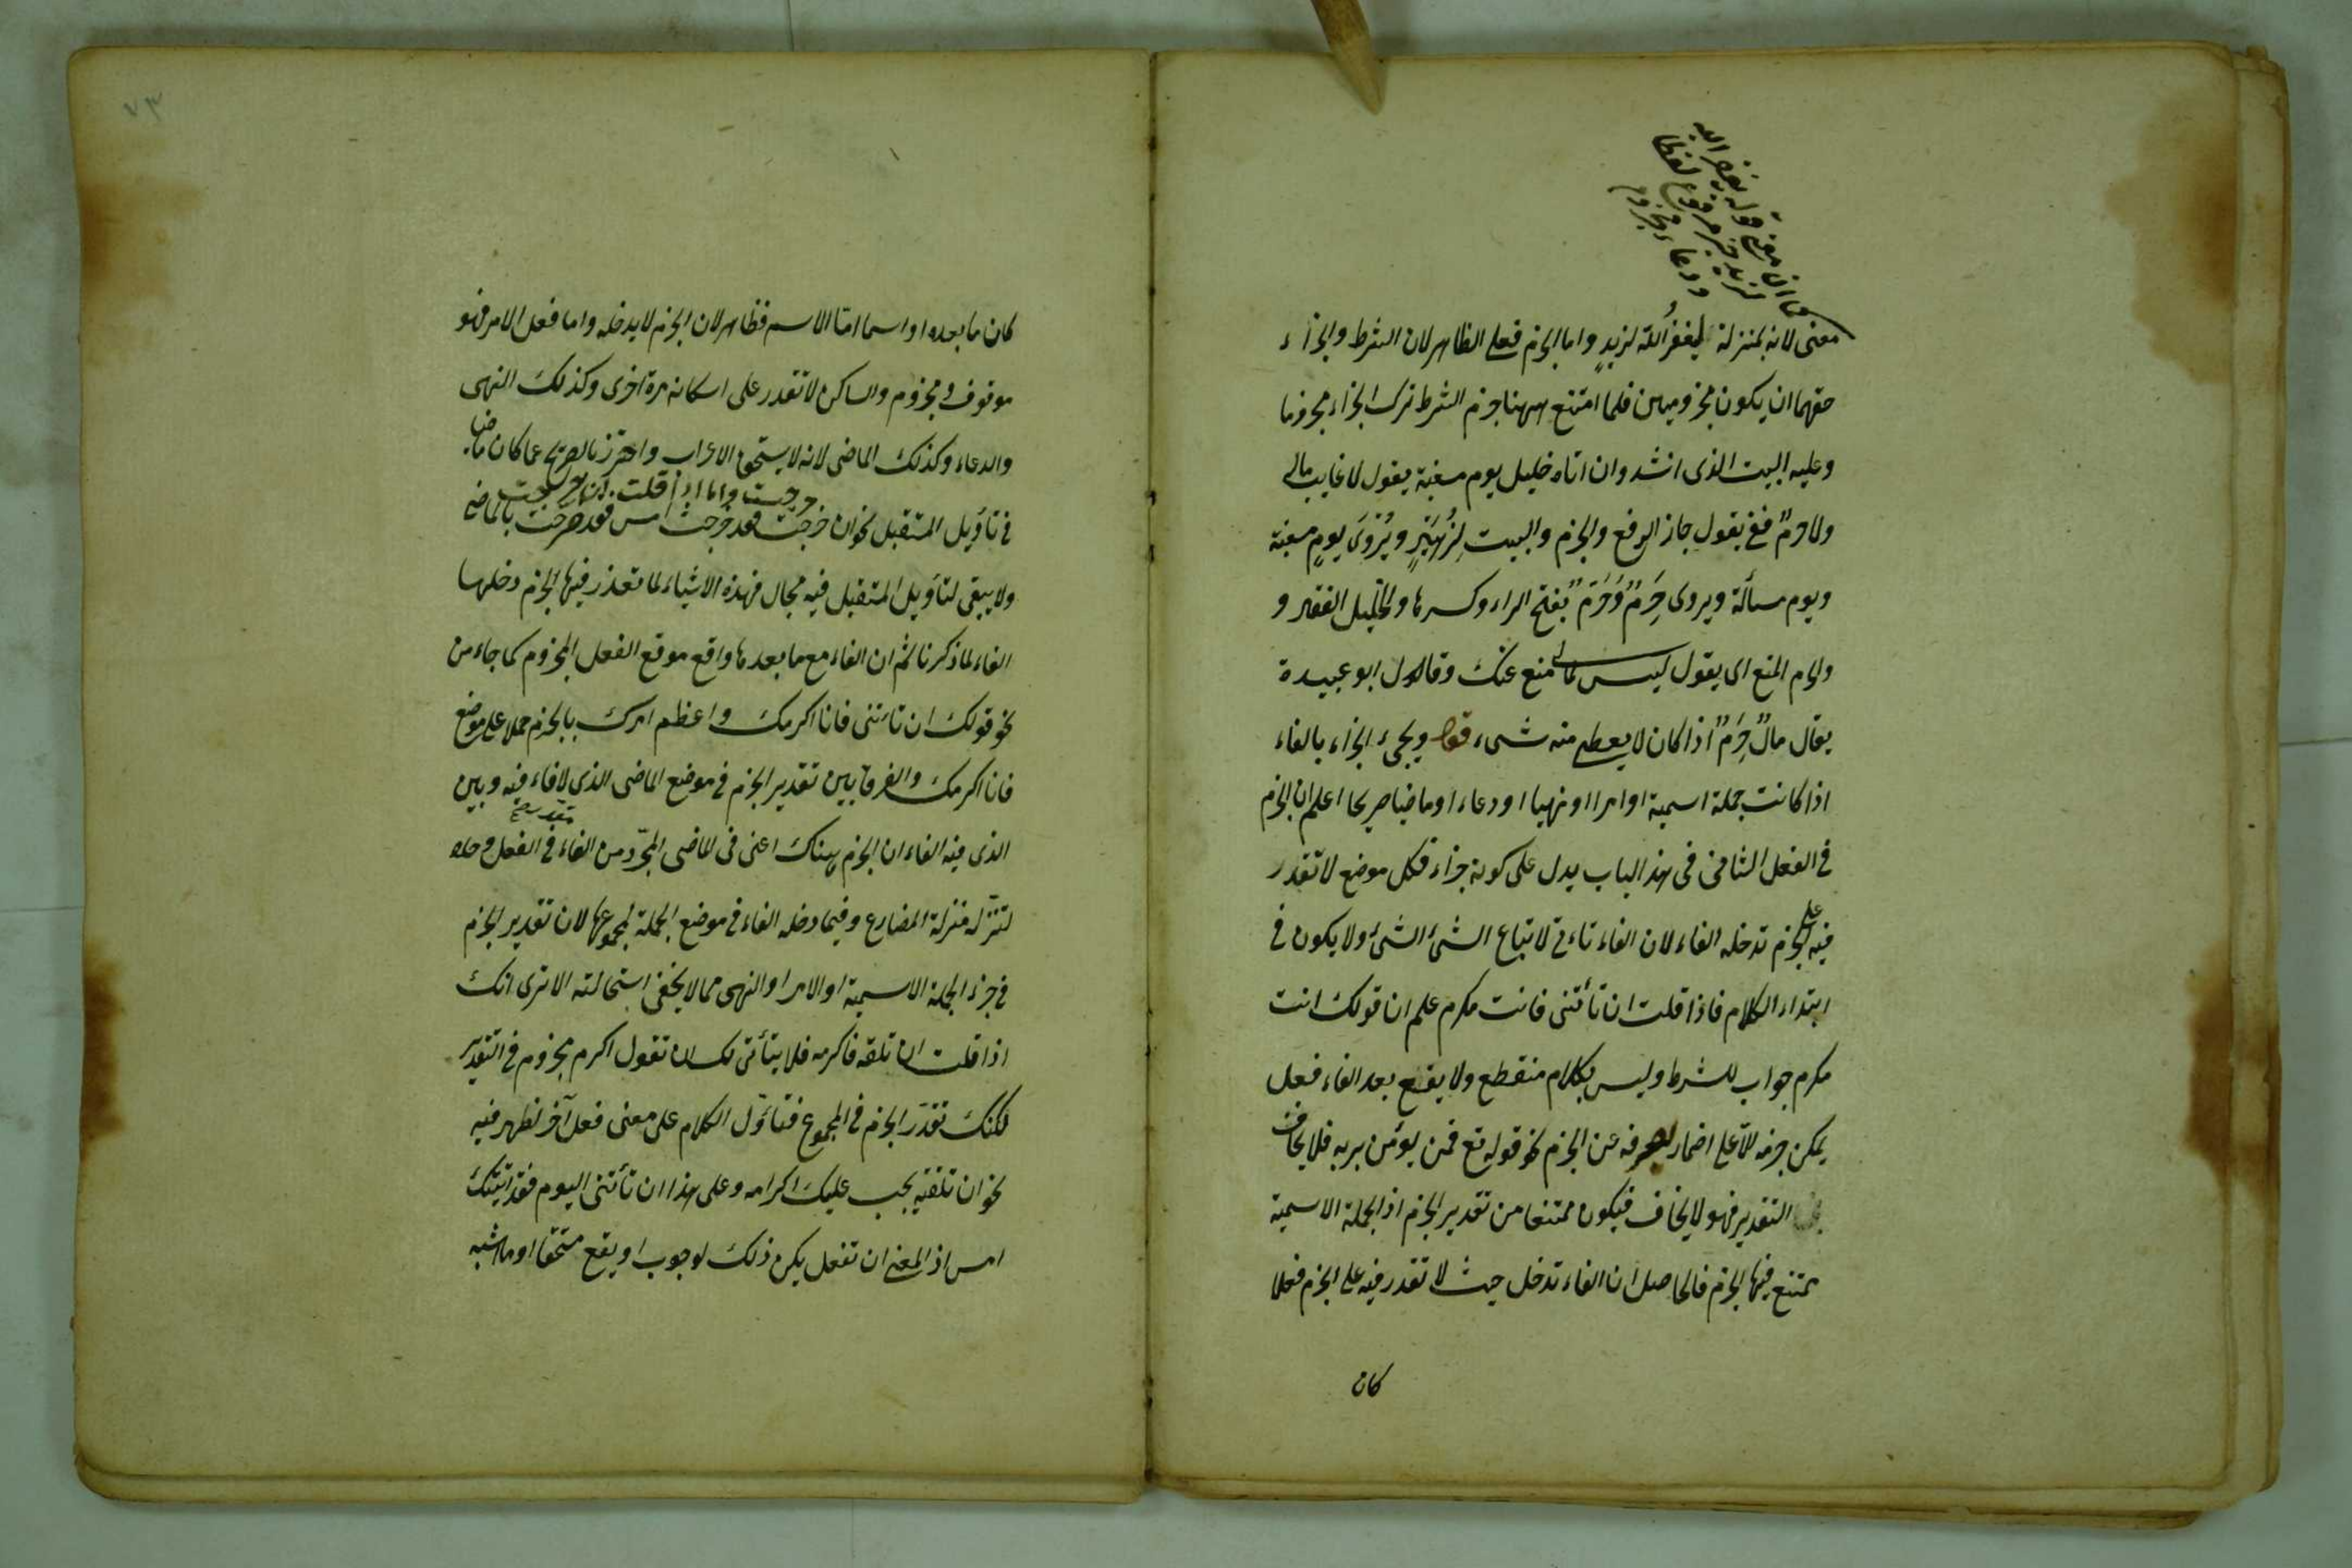 كما ان موقع قوله يغفر الله
لزيد خبر مرفوع لفظا
ودعاء مجزوم
معنى لانه بمنزلة ليغفر الله لزيدٍ واما الجزم فعلى الظاهر لان الشرط والجزاء
حقهما ان يكونا مجزومين فلما امتنع ههنا جزم الشرط ترك الجزاء مجزوما
وعليه البيت الذى انشد وان اتاه خليل يوم مسغبة يقول لا غايب مالى
ولا حرمٌ ففى يقول جاز الرفع والجزم والبيت لِزُهَيْرٍ ويُرْوَى يوم مسغبة
ويوم مسألة ويروى حَرِمٌ وَحَرَمٌ بفتح الراء وكسرها والخليل الفقير و
والحرام المنع اى يقول ليس مالى منع عنك وقال ابو عبيدة
يقال مالٌ حَرِمٌ اذا كان لا يعطى منه شىء قوله ويجىء الجزاء بالفاء
اذا كانت جملة اسمية او امرا او نهيا او دعاء او ماضيا صريحا اعلم ان الجزم
فى الفعل الثانى فى هذا الباب يدل على كونه جزاء فكل موضع لا تقدر
فيه على الجزم تدخله الفاء لان الفاء تاءتى لاتباع الشىء الشىء ولا يكون فى
ابتداء الكلام فاذا قلت ان تأتنى فانت مكرم علم ان قولك انت
مكرم جواب للشرط وليس بكلام منقطع ولا يقع بعد الفاء فعل
يمكن جزمه الا على اضمار يصرفه عن الجزم نحو قوله تع فمن يؤمن بربه فلا يخاف
التقدير فهو لا يخاف فيكون ممتنعا من تقدير الجزم اذ الجملة الاسمية
يمتنع فيها الجزم فالحاصل ان الفاء تدخل حيث لا تقدر فيه على الجزم فعلا
كان
٧٣
كان ما بعده او اسما اما الاسم فظاهر لان الجزم لا يدخله واما فعل الامر فهو
موقوف ومجزوم والساكن لا تقدر على اسكانه مرة اخرى وكذلك النهى
والدعاء وكذلك الماضى لانه لا يستحق الاعراب واحترز بالصريح عما كان ماضيا
خرجت واما اذا قلت ان خرجت
فى تأويل المستقبل نحو ان خرجت فقد خرجت امس فقد صرحت بالماضى
ولا يبقى لتأويل المستقبل فيه مجال فهذه الاشياء لما تعذر فيها الجزم دخلها
الفاء لما ذكرنا ثم ان الفاء مع ما بعدها واقع موقع الفعل المجزوم كما جاء من
نحو قولك ان تأتنى فانا اكرمك واعظم امرك بالجزم حملا على موضع
فانا اكرمك والفرق بين تقدير الجزم فى موضع الماضى الذى لا فاء فيه وبين
الذى فيه الفاء ان الجزم هناك اعنى فى الماضى المجرّد من الفاء فى الفعل وحده
لتنزله منزلة المضارع وفيما دخله الفاء فى موضع الجملة بمجموعها لان تقدير الجزم
فى جزء الجملة الاسمية او الامر او النهى مما لا يخفى استحالته الا ترى انك
اذا قلت ان تلقه فاكرمه فلا يتأتى لك ان تقول اكرم مجزوم فى التقدير
لكنك تقدّر الجزم فى المجموع فتأوّل الكلام على معنى فعل آخر تظهر فيه
نحو ان تلقيه يجب عليك اكرامه وعلى هذا ان تأتنى اليوم فقد اتيتك
امس اذ المعنى ان تفعل يكن ذلك لوجوب او يقع مستحقا او ما اشبه